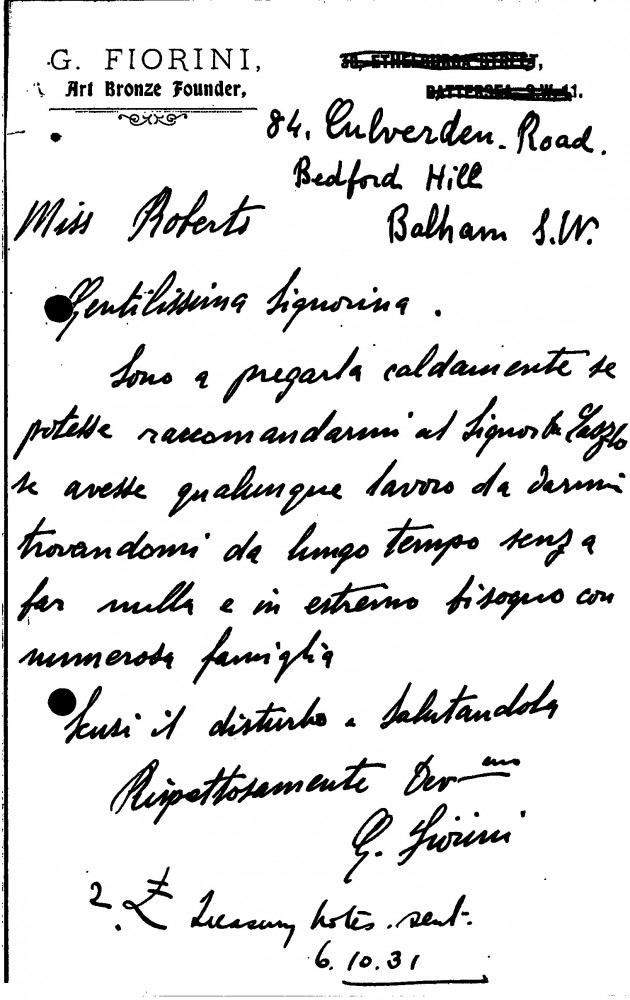 G. FIORINI,
Art Bronze Founder,
38, ETHELBURGA STREET,
BATTERSEA, S.W.11.
84, Culverden Road.
Bedford Hill
Balham S.W.
Miss Roberts
Gentilissima Signorina.
Sono a pregarla caldamente se
potesse raccomandarmi al Signor De Laszlo
se avesse qualunque lavoro da darmi
trovandomi da lungo tempo senza
far nulla e in estremo bisogno con
numerosa famiglia
Scusi il disturbo e salutandola
Rispettosamente Dev—mo
G. Fiorini
2.£ Treasury notes. sent.
6.10.31